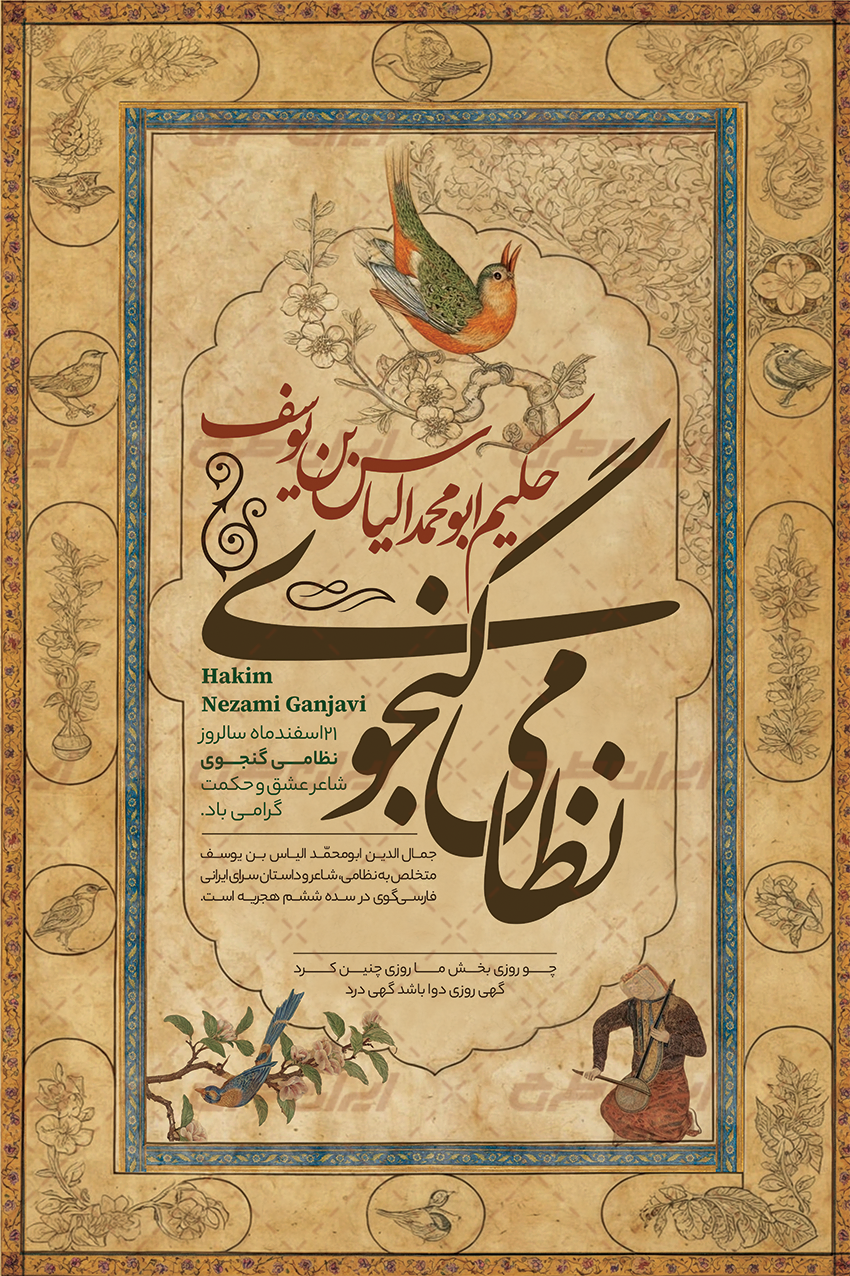 حکیم ابومحمد الیاس بن یوسف
نظامی گنجوی
Hakim
Nezami Ganjavi
۲۱اسفندماه سالروز
نظامی گنجوی
شاعر عشق و حکمت
گرامی باد.
جمال الدین ابومحمّد الیاس بن یوسف
متخلص به نظامی، شاعر و داستان سرای ایرانی
فارسی‌گوی در سده ششم هجریه است.
چو روزی بخش ما روزی چنین کرد
گهی روزی دوا باشد گهی درد
ایران طرح